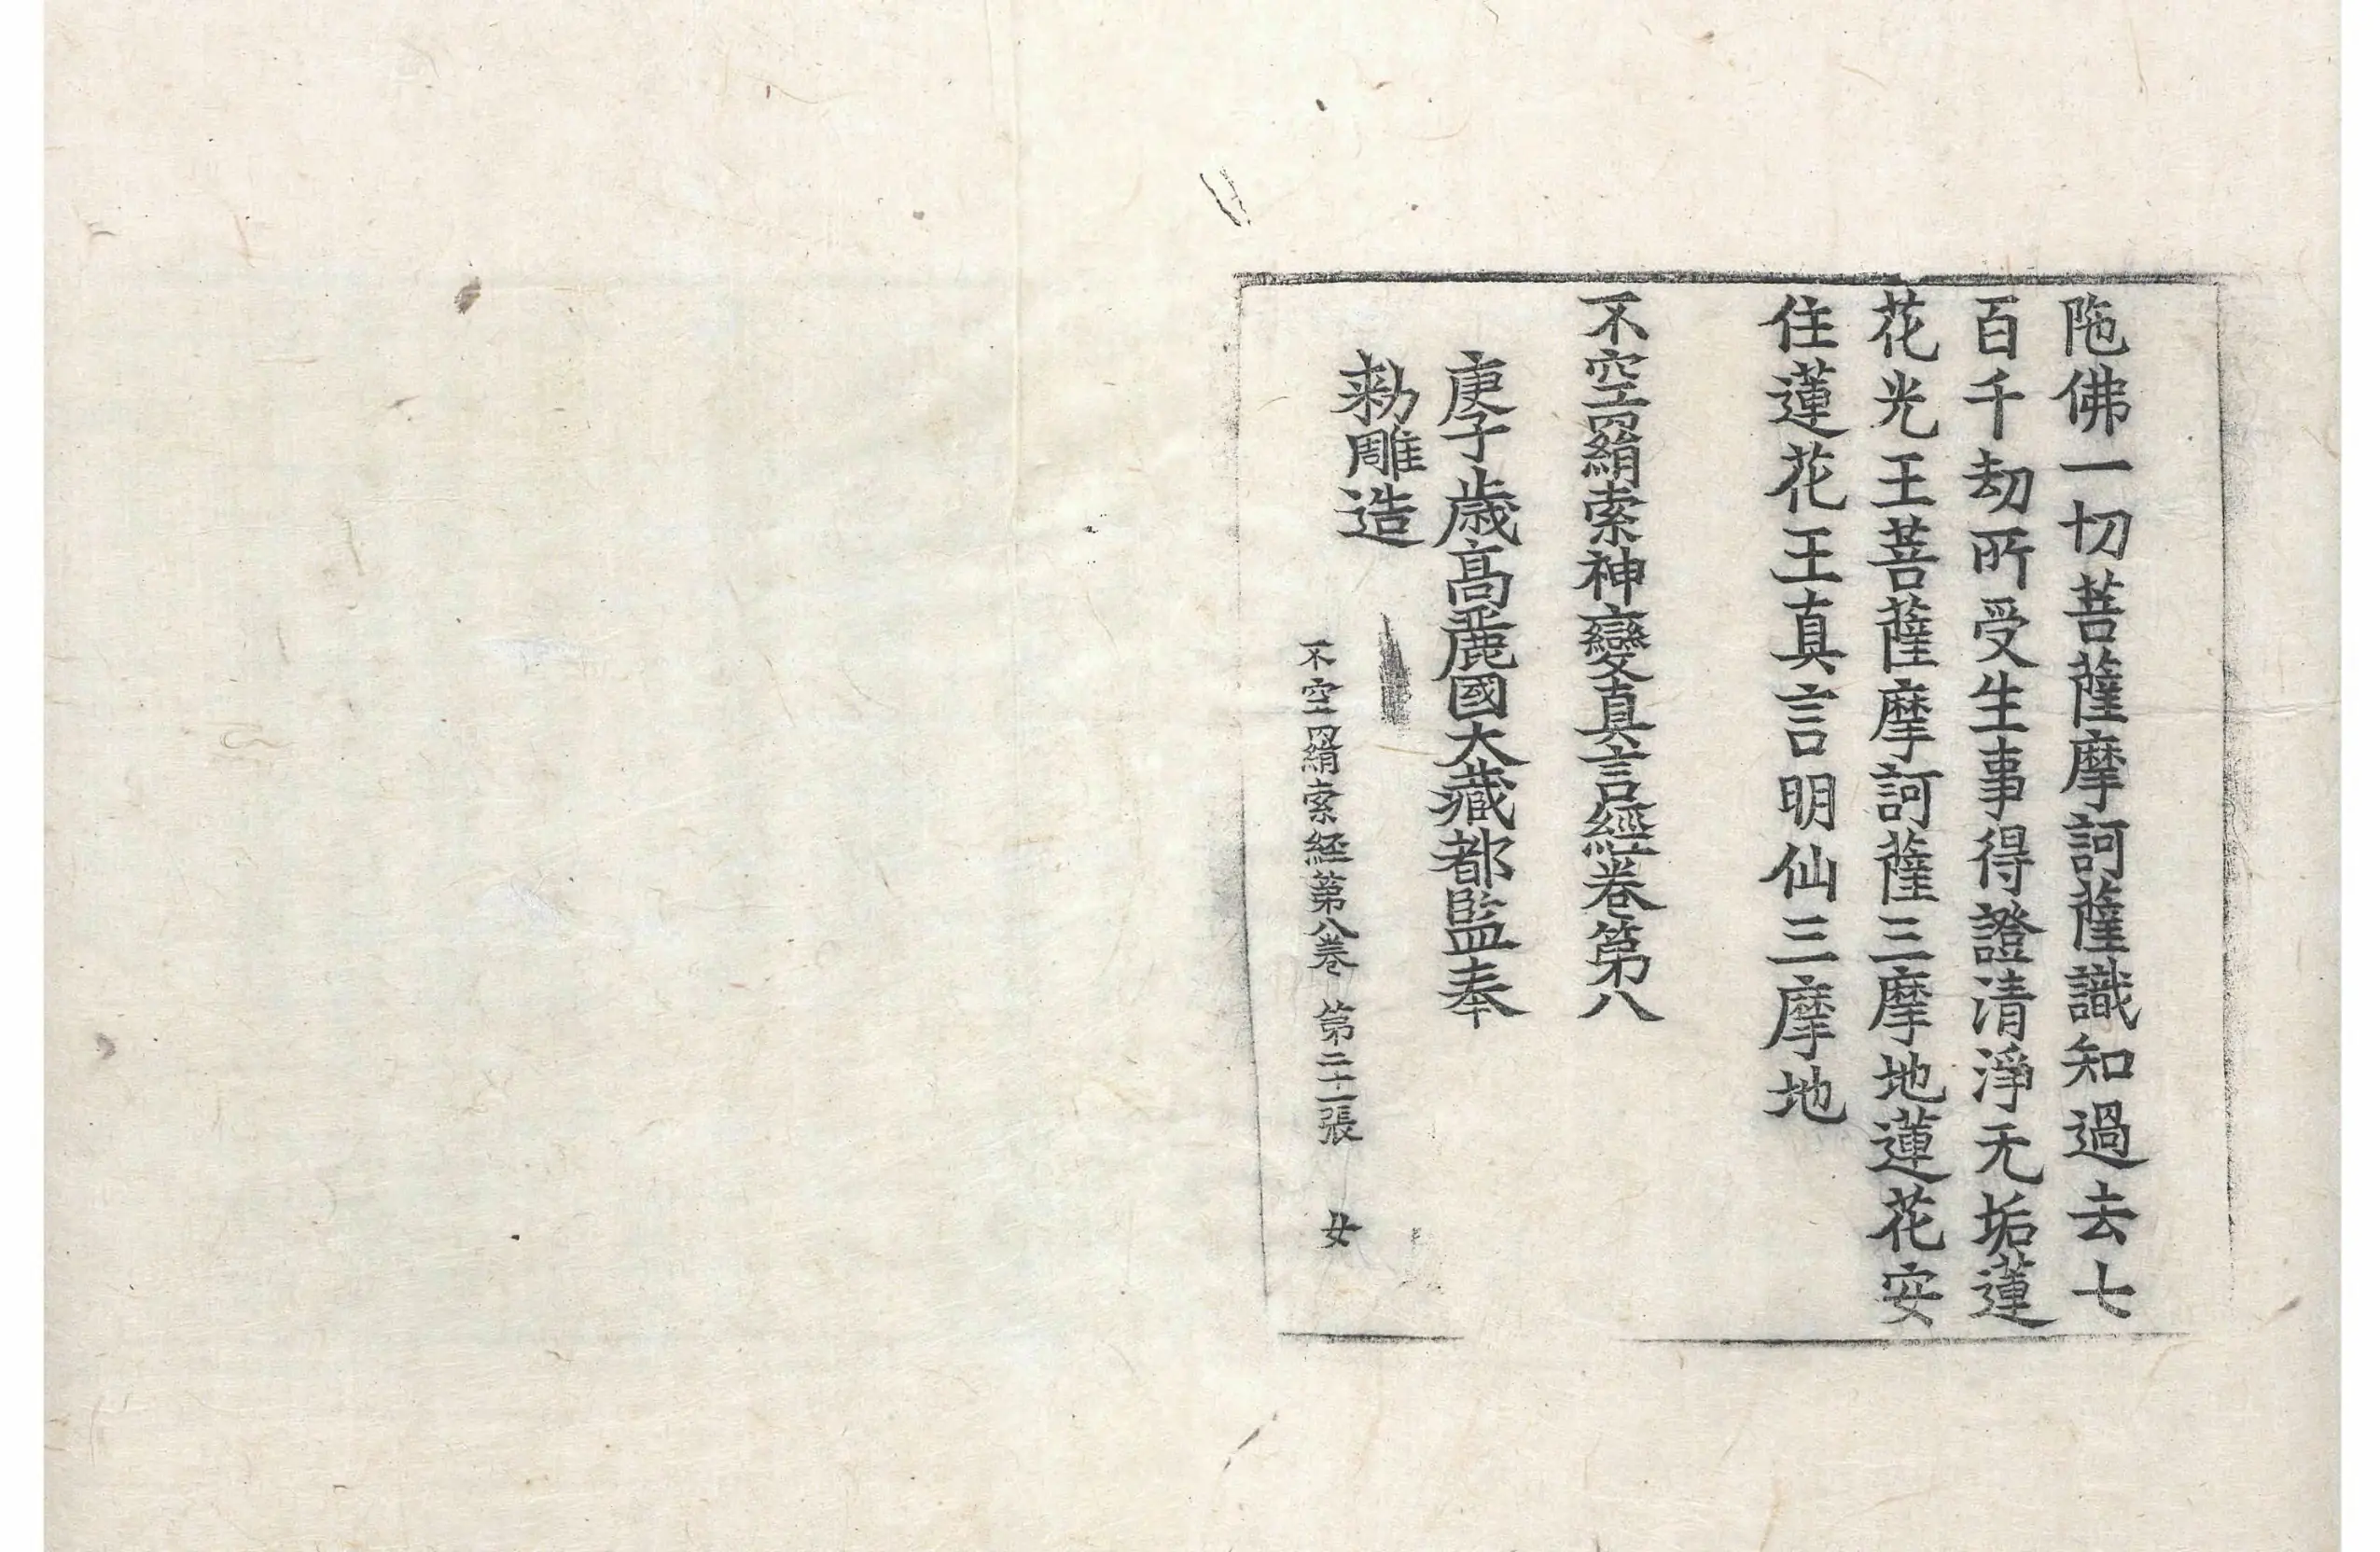 陁佛一切菩薩摩訶薩識知過去七
百千劫所受生事得證清淨无垢蓮
花光王菩薩摩訶薩三摩地蓮花安
住蓮花王真言明仙三摩地
不空罥索神變真言經卷第八
庚子歳高麗國大藏都監奉
勑雕造
不空罥索経第八卷 第二十一張 女